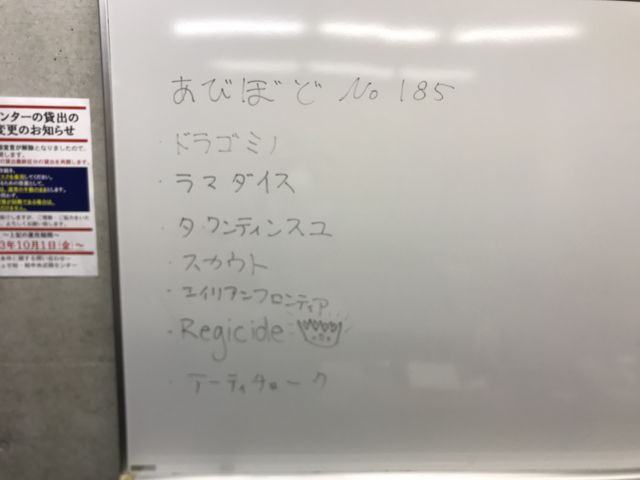 あびぼど No 185
・ドラゴミノ
・ラマダイス
・タワンティンスユ
・スカウト
・エイリアンフロンティア
・Regicide
・アーティチョーク
ンターの貸出の
変更のお知らせ
3年10月1日(金)～